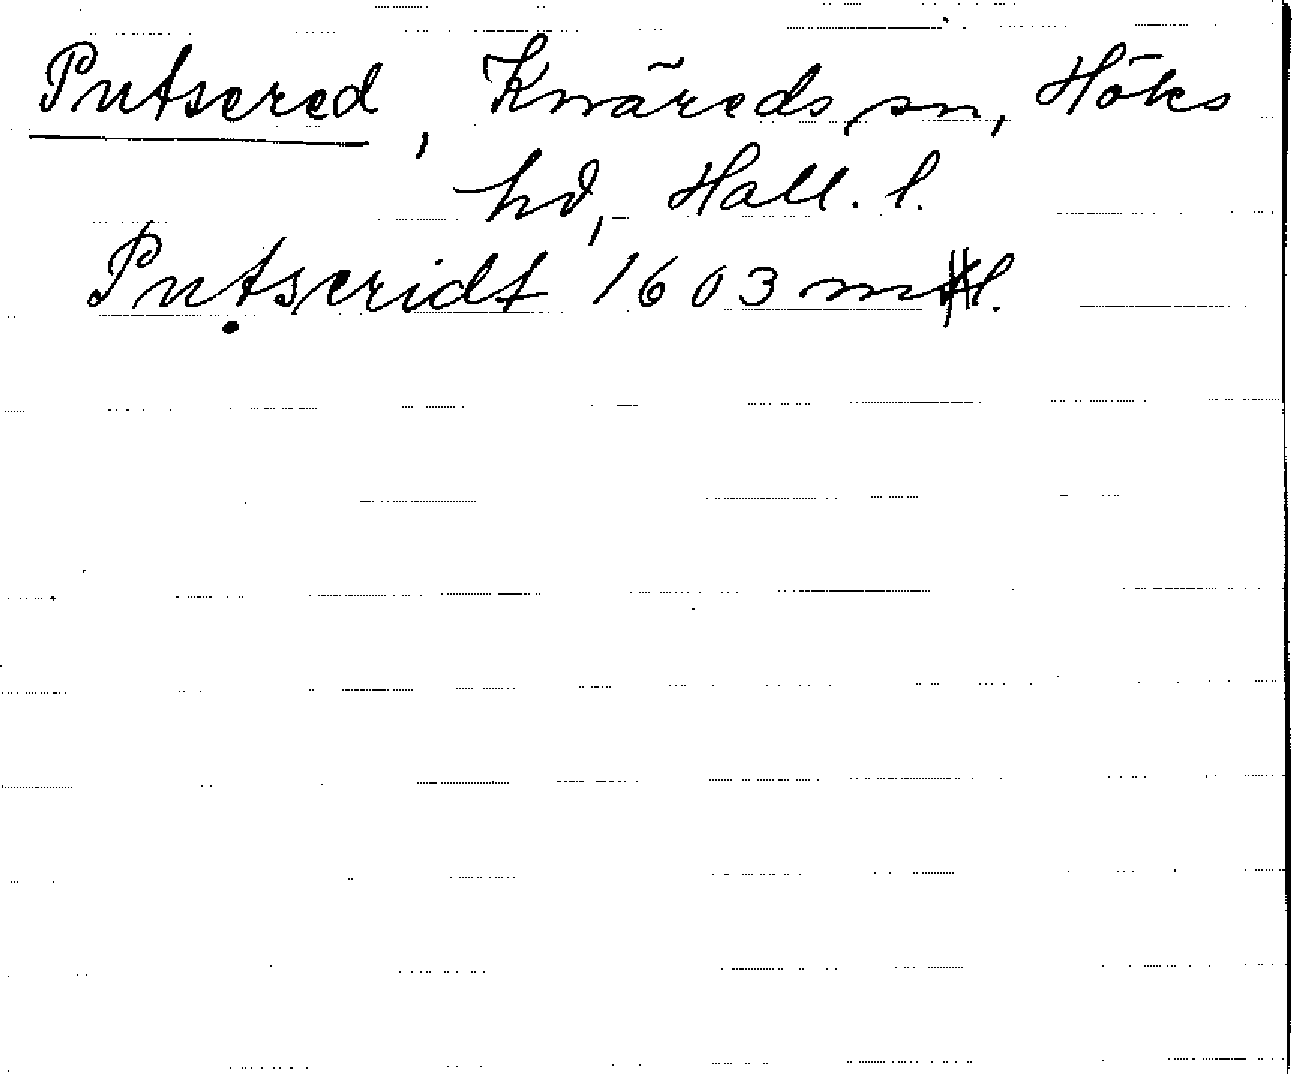 Putsered, Knäreds sn, Höks
hd, Hall. l.
Putseridt 1603 mtl.